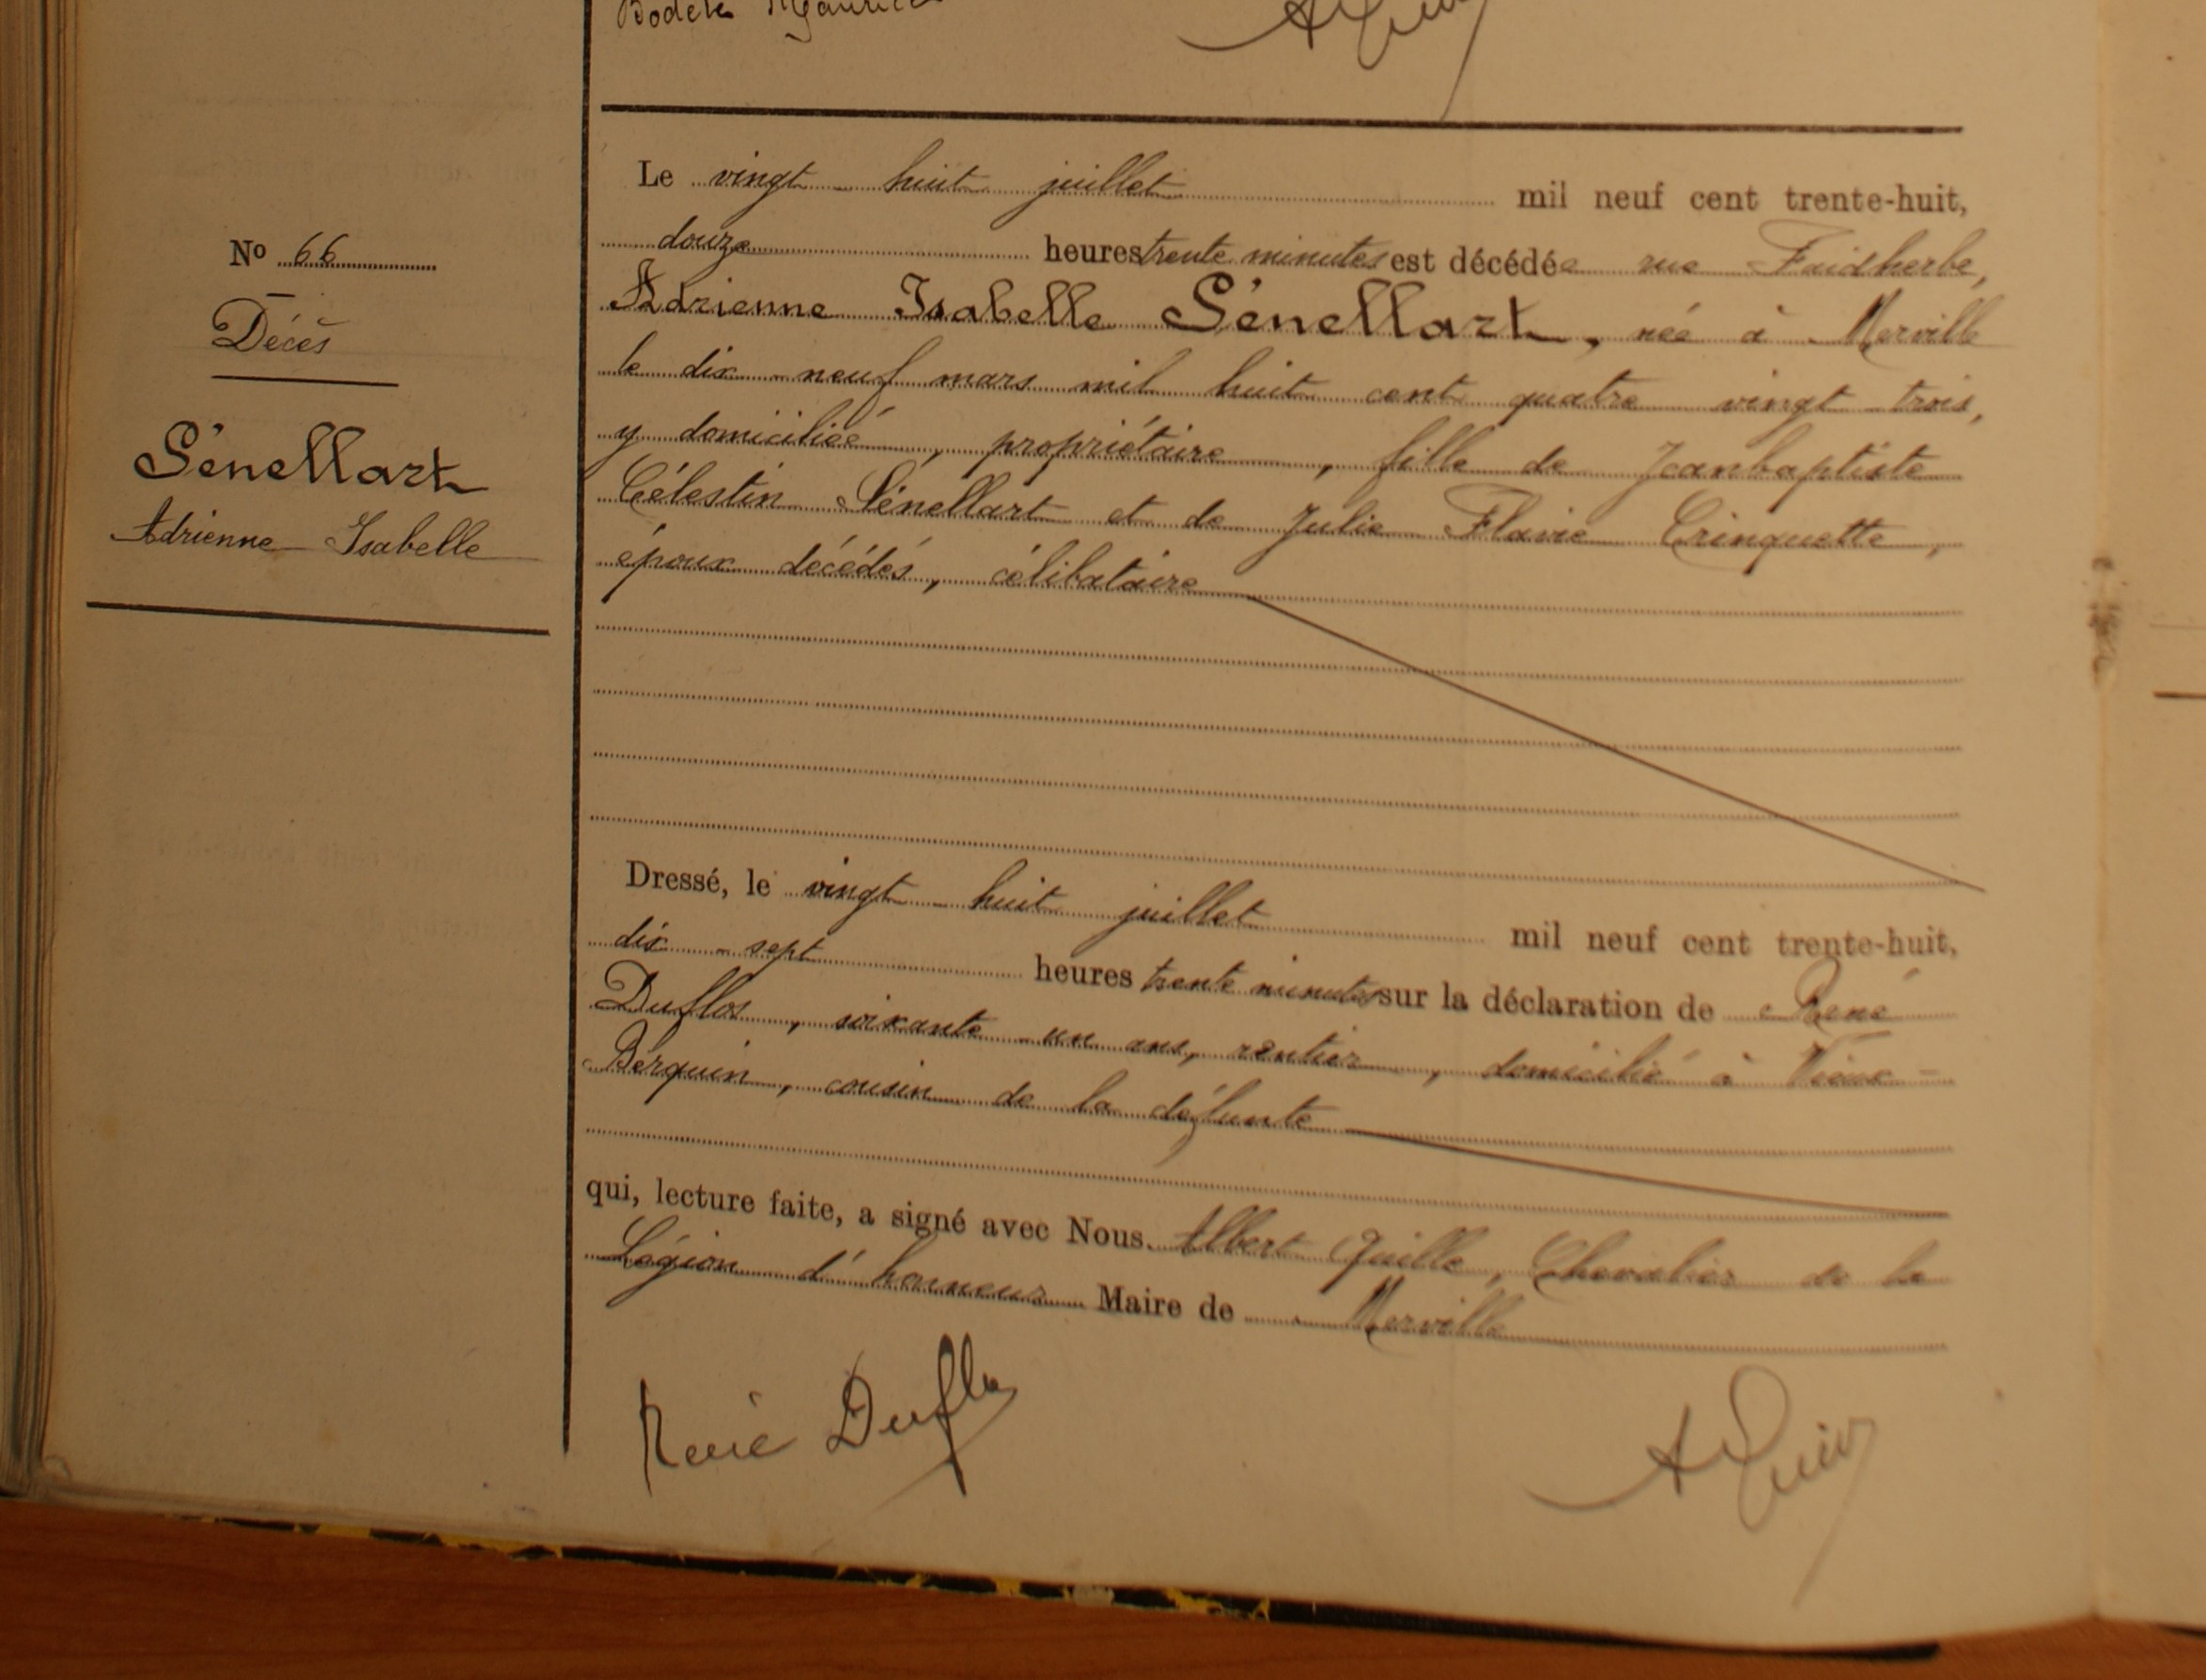 Bodele Maurice
Nº 66
Décès
Sénellart
Adrienne Isabelle
Le vingt - huit juillet mil neuf cent trente-huit,
douze heures trente minutes est décédée rue Faidherbe,
Adrienne Isabelle Sénellart, née à Merville
le dix-neuf mars mil huit cent quatre vingt trois,
y domiciliée, propriétaire, fille de Jeanbaptiste
Célestin Sénellart et de Julie Flavie Crinquette,
époux décédés, célibataire
Dressé, le vingt - huit juillet mil neuf cent trente-huit,
dix - sept heures trente minutes sur la déclaration de René
Duflos, soixante - un ans, rentier, domicilié à Vieux -
Berquin, cousin de la défunte
qui, lecture faite, a signé avec Nous. Albert Quille, Chevalier de la
Légion d'honneur Maire de Merville
René Duflos